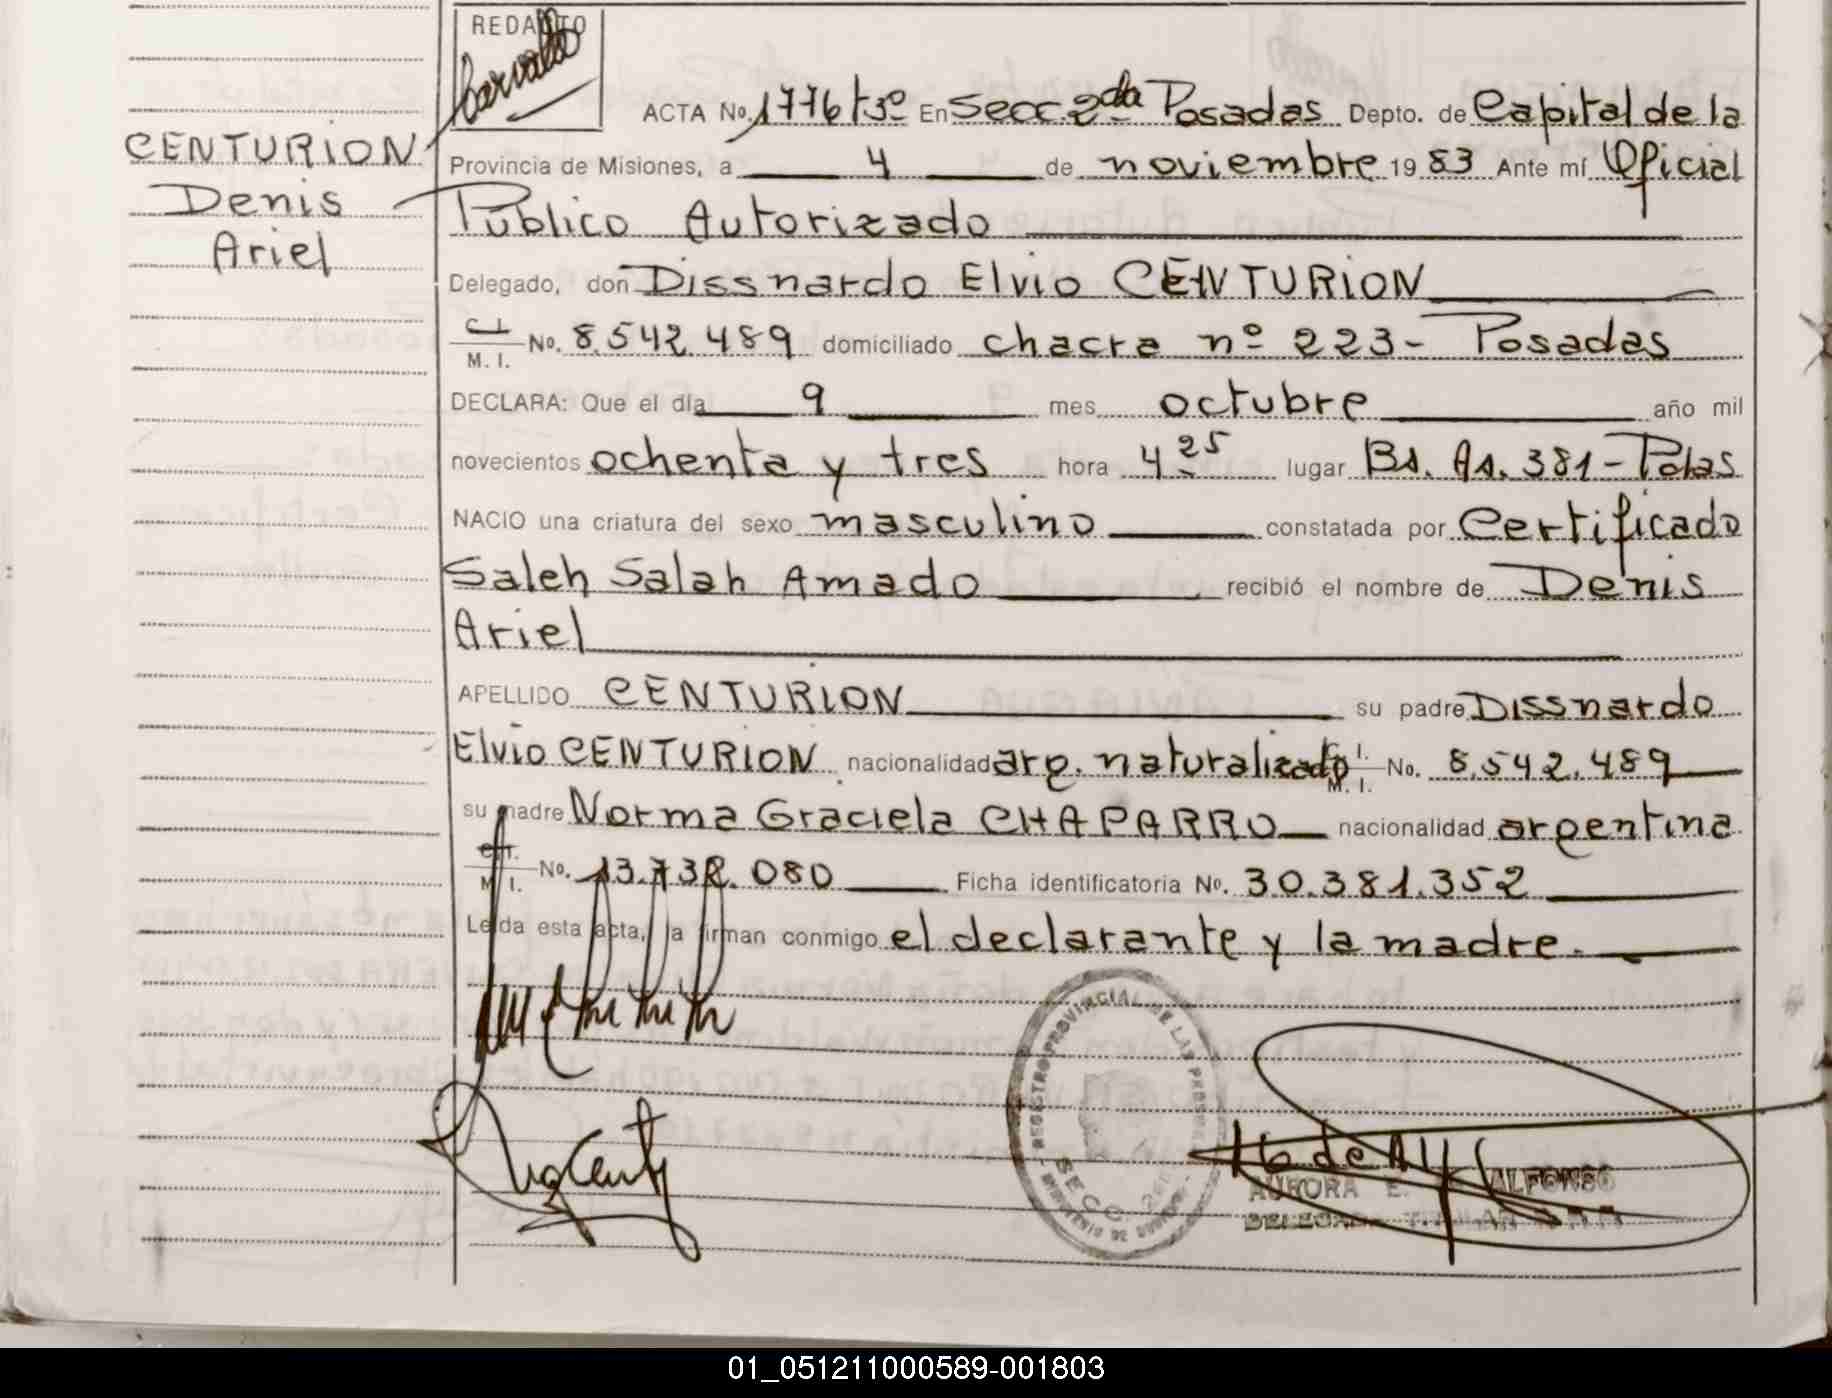 REDACTO
CENTURION
Denis
Ariel
ACTA No. 1776 t3º En Secc. 2da Posadas Depto. de Capital de la
Provincia de Misiones, a 4 de noviembre 1983 Ante mí Oficial
Público Autorizado
Delegado, don Dissnardo Elvio CENTURION
C. I. M. I. No. 8.542.489 domiciliado chacra nº 223- Posadas
DECLARA: Que el día 9 mes octubre año mil
novecientos ochenta y tres hora 4 25 lugar Bs. As. 381 - Pdas
NACIO una criatura del sexo masculino constatada por Certificado
Saleh Salah Amado recibió el nombre de Denis
Ariel
APELLIDO CENTURION su padre Dissnardo
Elvio CENTURION nacionalidad arg. naturalizado C. I. M. I. No. 8.542.489
su madre Norma Graciela CHAPARRO nacionalidad argentina
M. I. No. 13.732.080 Ficha identificatoria No. 30.381.352
Leída esta acta, la firman conmigo el declarante y la madre.
REGISTRO PROVINCIAL DE LAS PERSONAS
SECC. 2da
AURORA E. ALFONSO
DELEGADA TITULAR
01_051211000589-001803